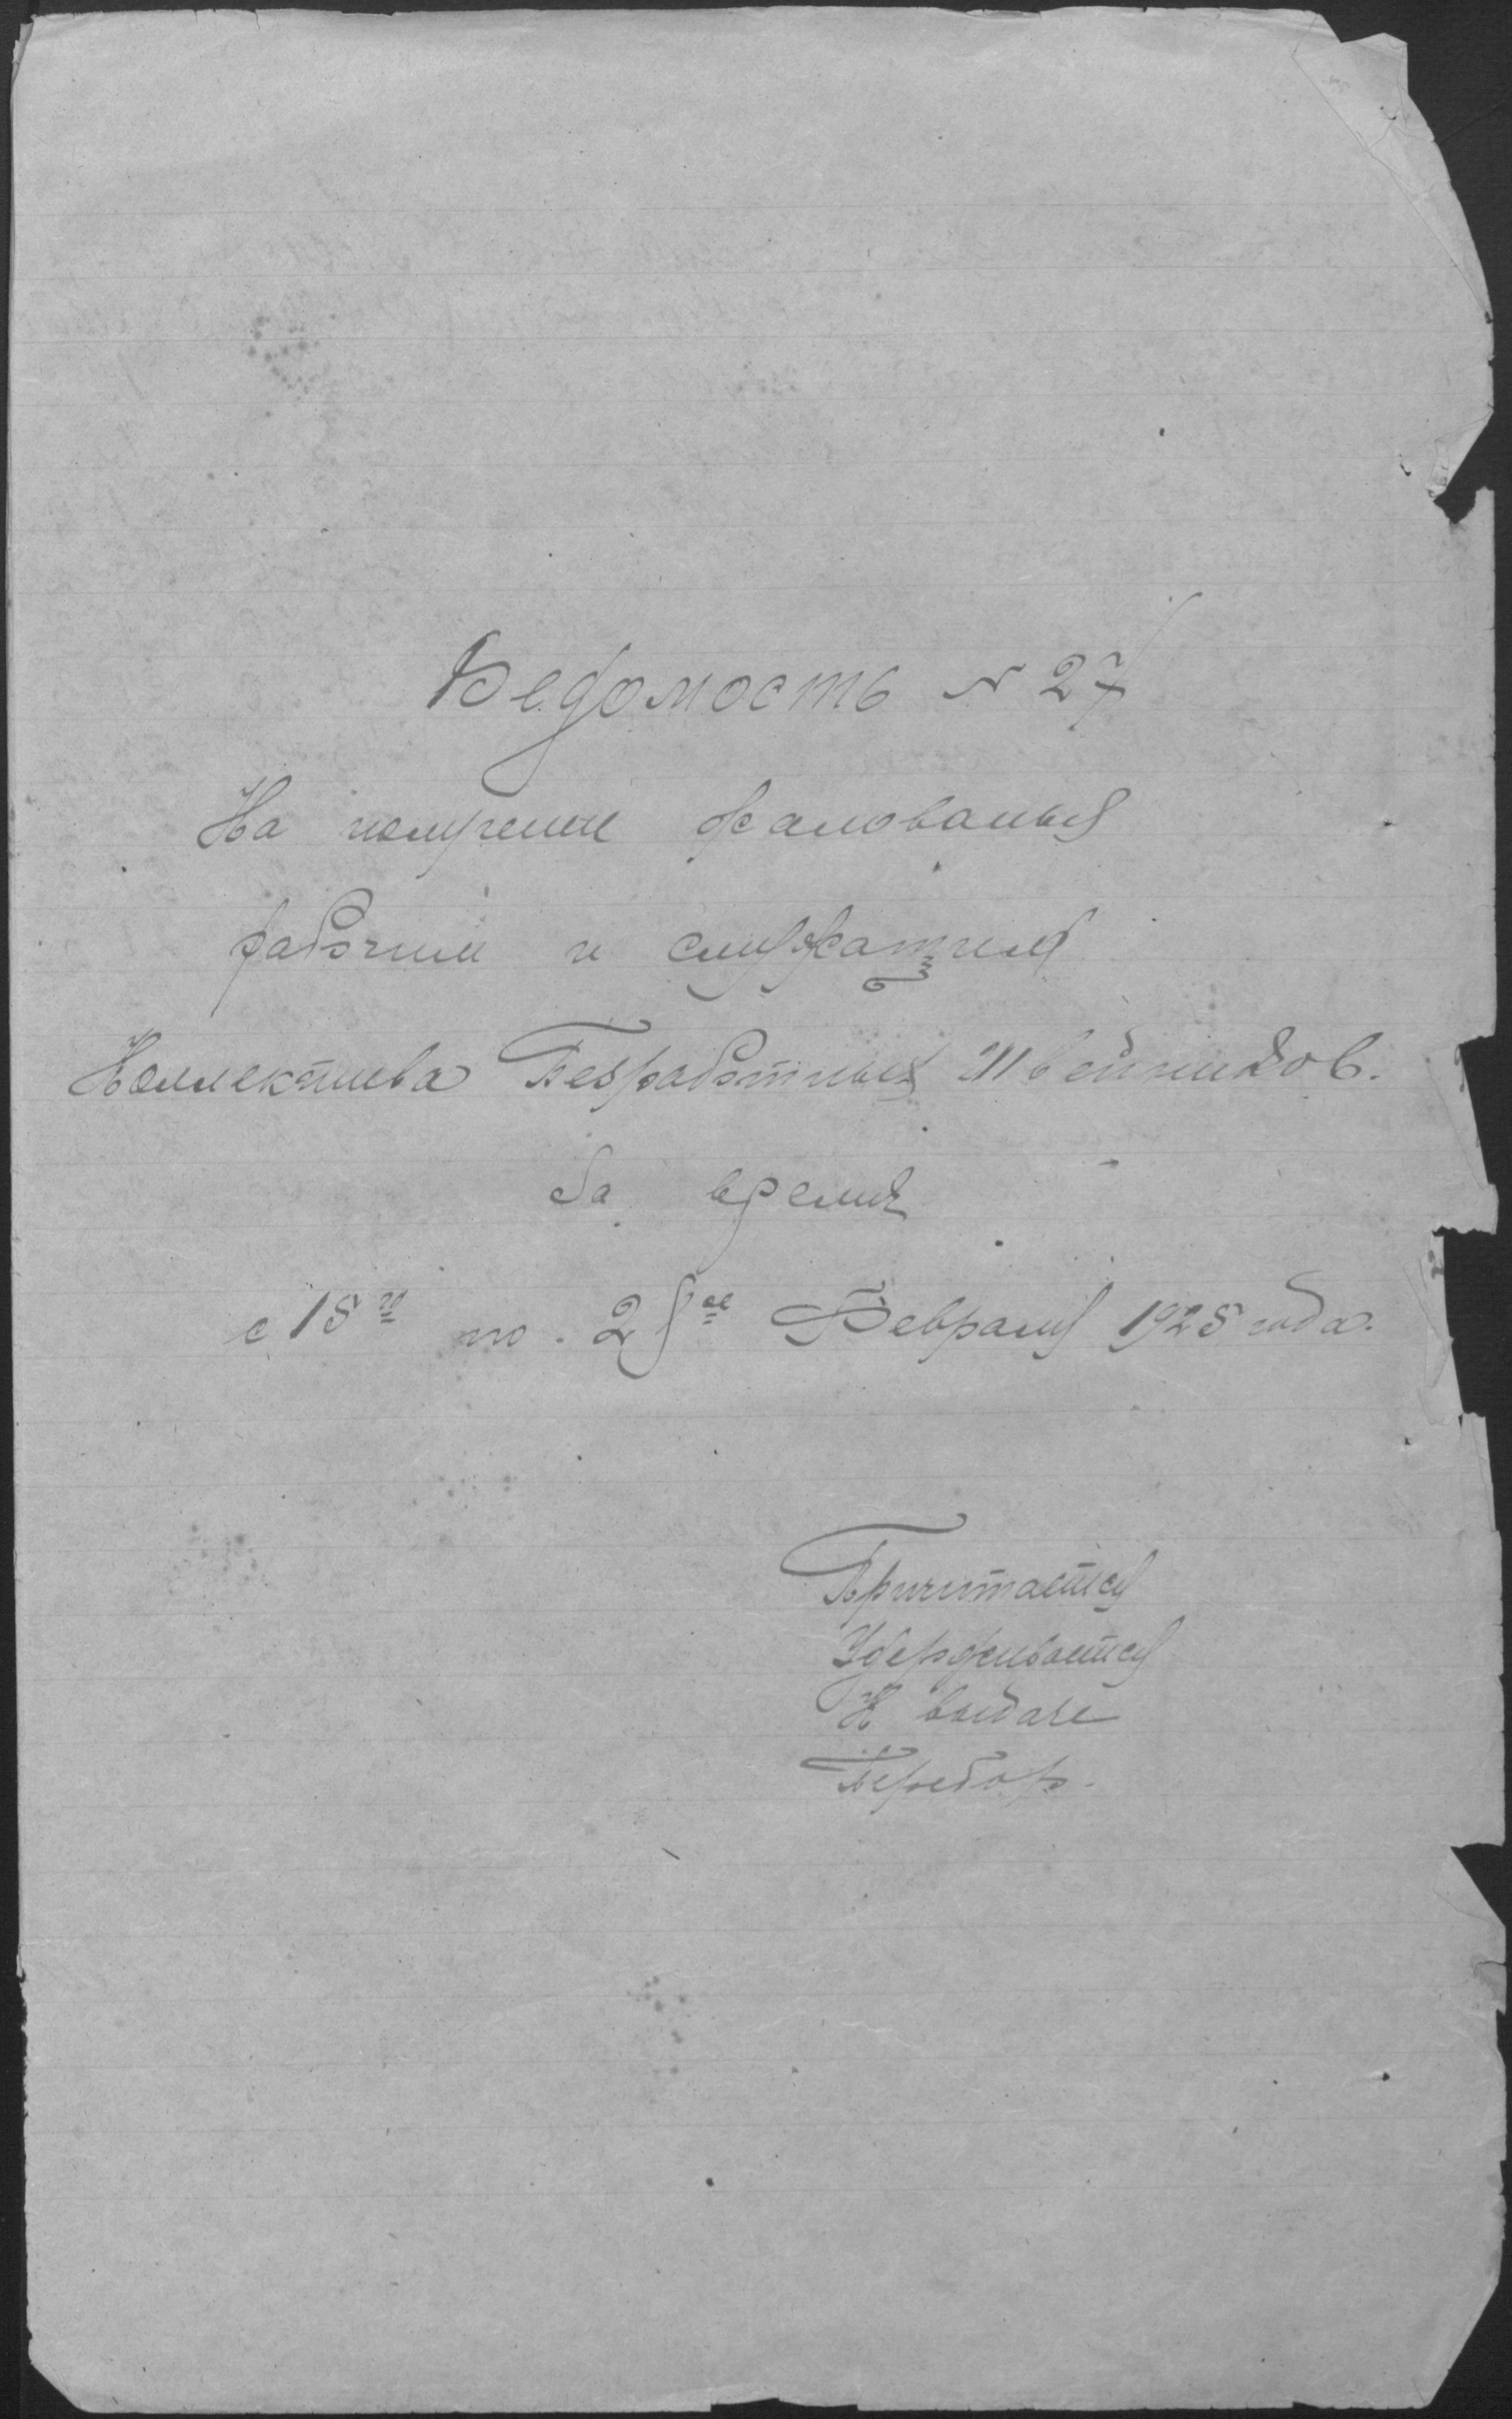 Ведомость № 27
На получение жалованья
рабочим и служащим
Коллектива Безработных Швейников.
За время
с 15го по. 28ое Февраля 1925 года.
Причитается
Удерживается
К выдаче
Перебор.